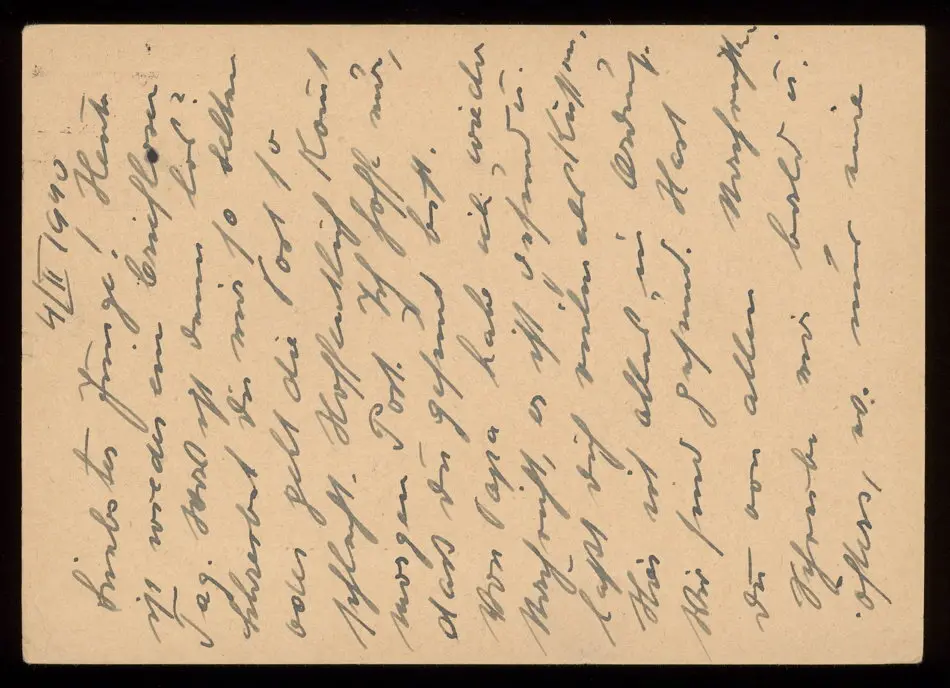 4/II 1940
Liebster Junge! Heute
ist wieder ein briefloser
Tag. Was ist denn los?
Schreibst du mir so selten
oder geht die Post so
schlecht. Hoffentlich kommt
morgen Post. Ich hoffe nur,
dass du gesund bist.
Von Papa habe ich wieder
Nachricht, er ist gesund u.
lässt dich vielmals küssen,
Hier ist alles in Ordnung.
Wir sind gesund. Hast
du von allen Nachricht?
Schreibe mir bald u.
öfters, u. sei mir eine